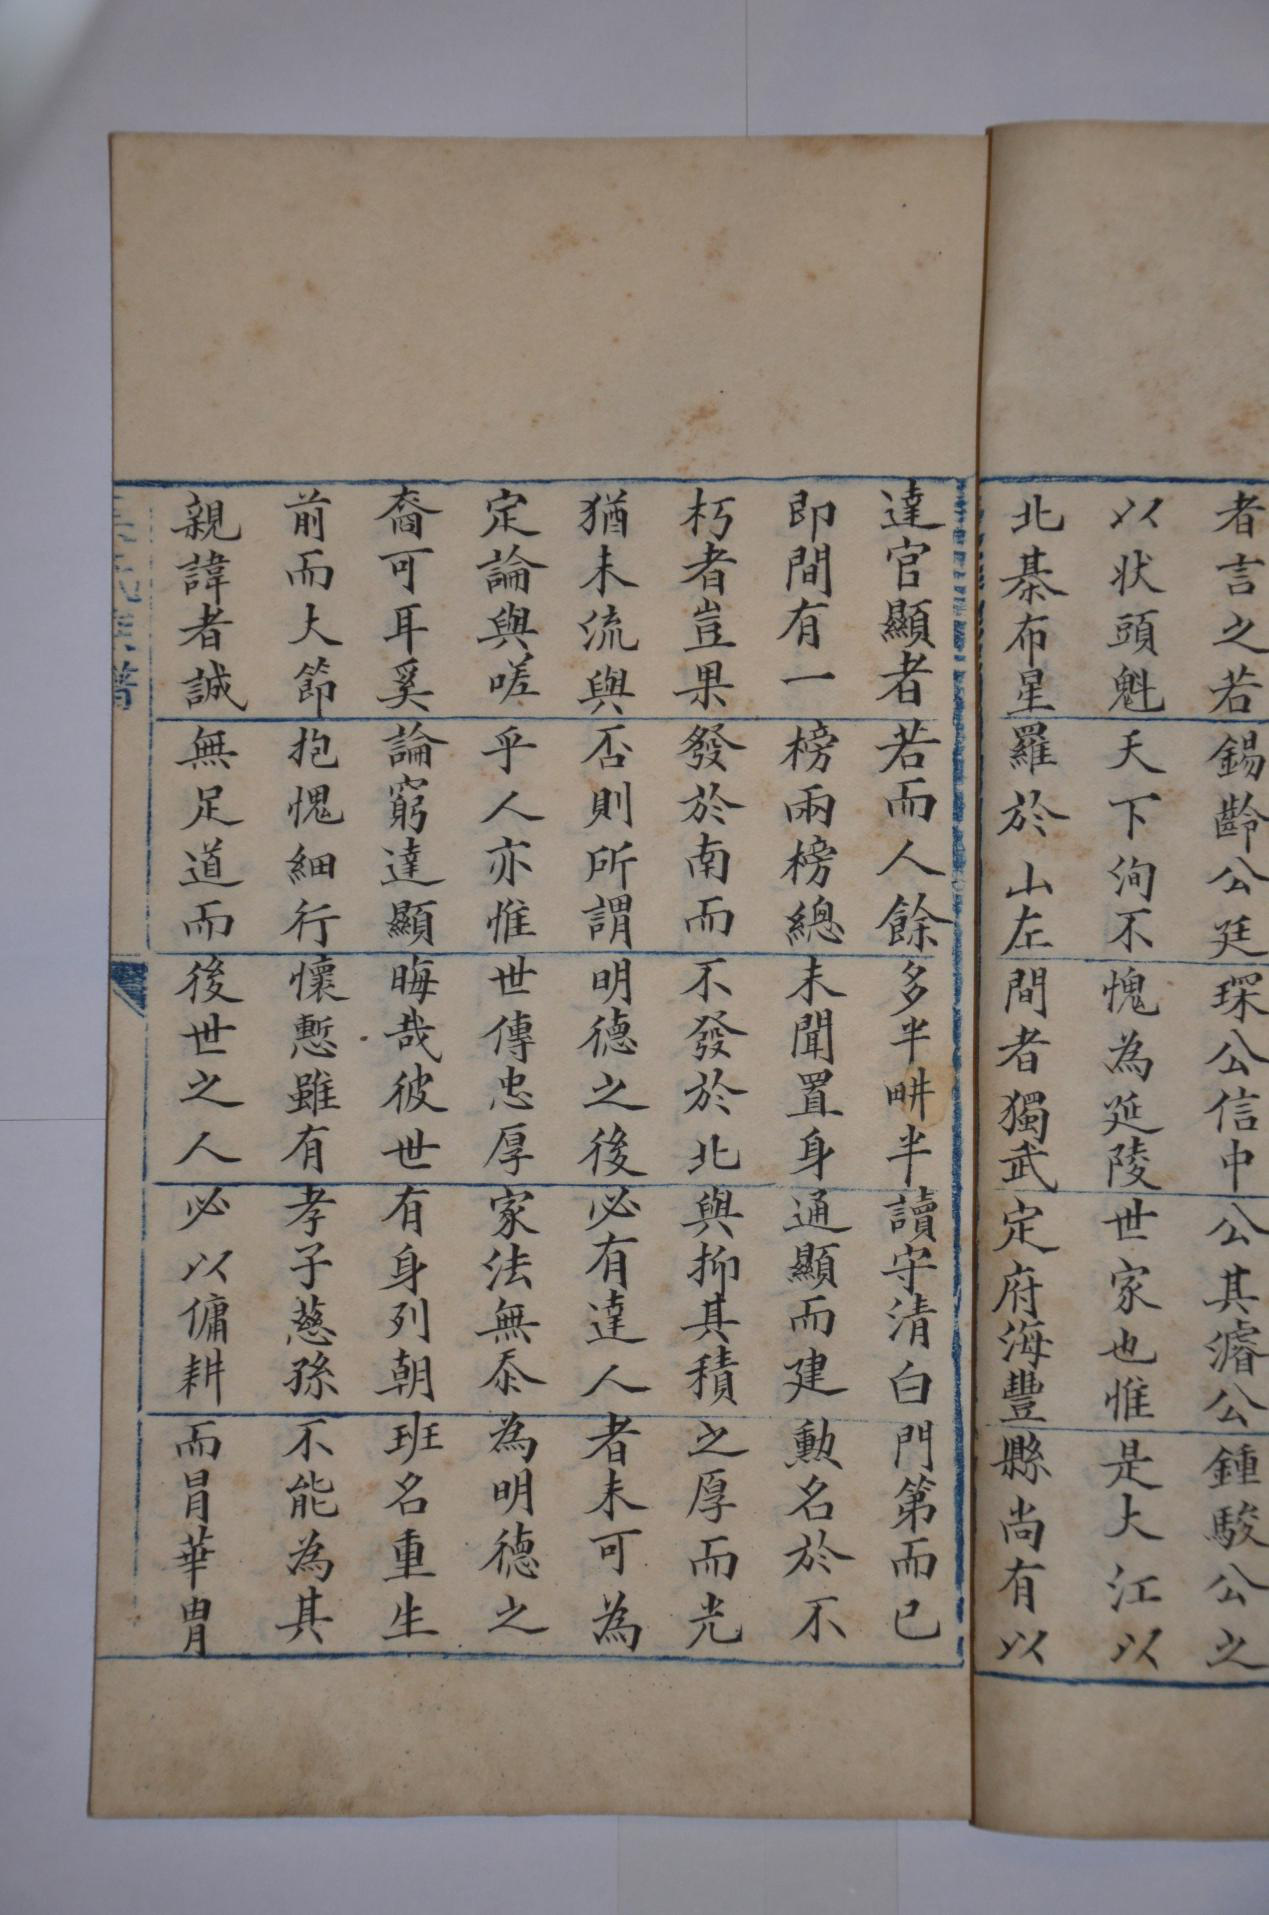 者言之若錫齡公廷琛公信中公其濬公鍾駿公之
以狀頭魁天下洵不愧為延陵世家也惟是大江以
北棊布星羅於山左間者獨武定府海豐縣尚有以
達官顯者若而人餘多半畊半讀守清白門第而已
即間有一榜兩榜總未聞置身通顯而建勲名於不
朽者豈果發於南而不發於北與抑其積之厚而光
猶未流與否則所謂明德之後必有達人者未可為
定論與嗟乎人亦惟世傳忠厚家法無忝為明德之
裔可耳奚論窮達顯晦哉彼世有身列朝班名重生
前而大節抱愧細行懷慙雖有孝子慈孫不能為其
親諱者誠無足道而後世之人必以傭耕而冐華胄
氏族譜